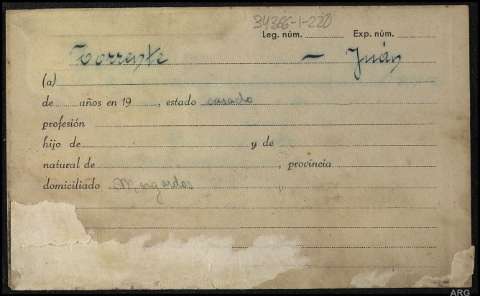 34366-1-220
Leg. núm. Exp. núm.
Torrente — Juán
(a)
de años en 19 , estado casado
profesión
hijo de y de
natural de , provincia
domiciliado Mugardos
ARG